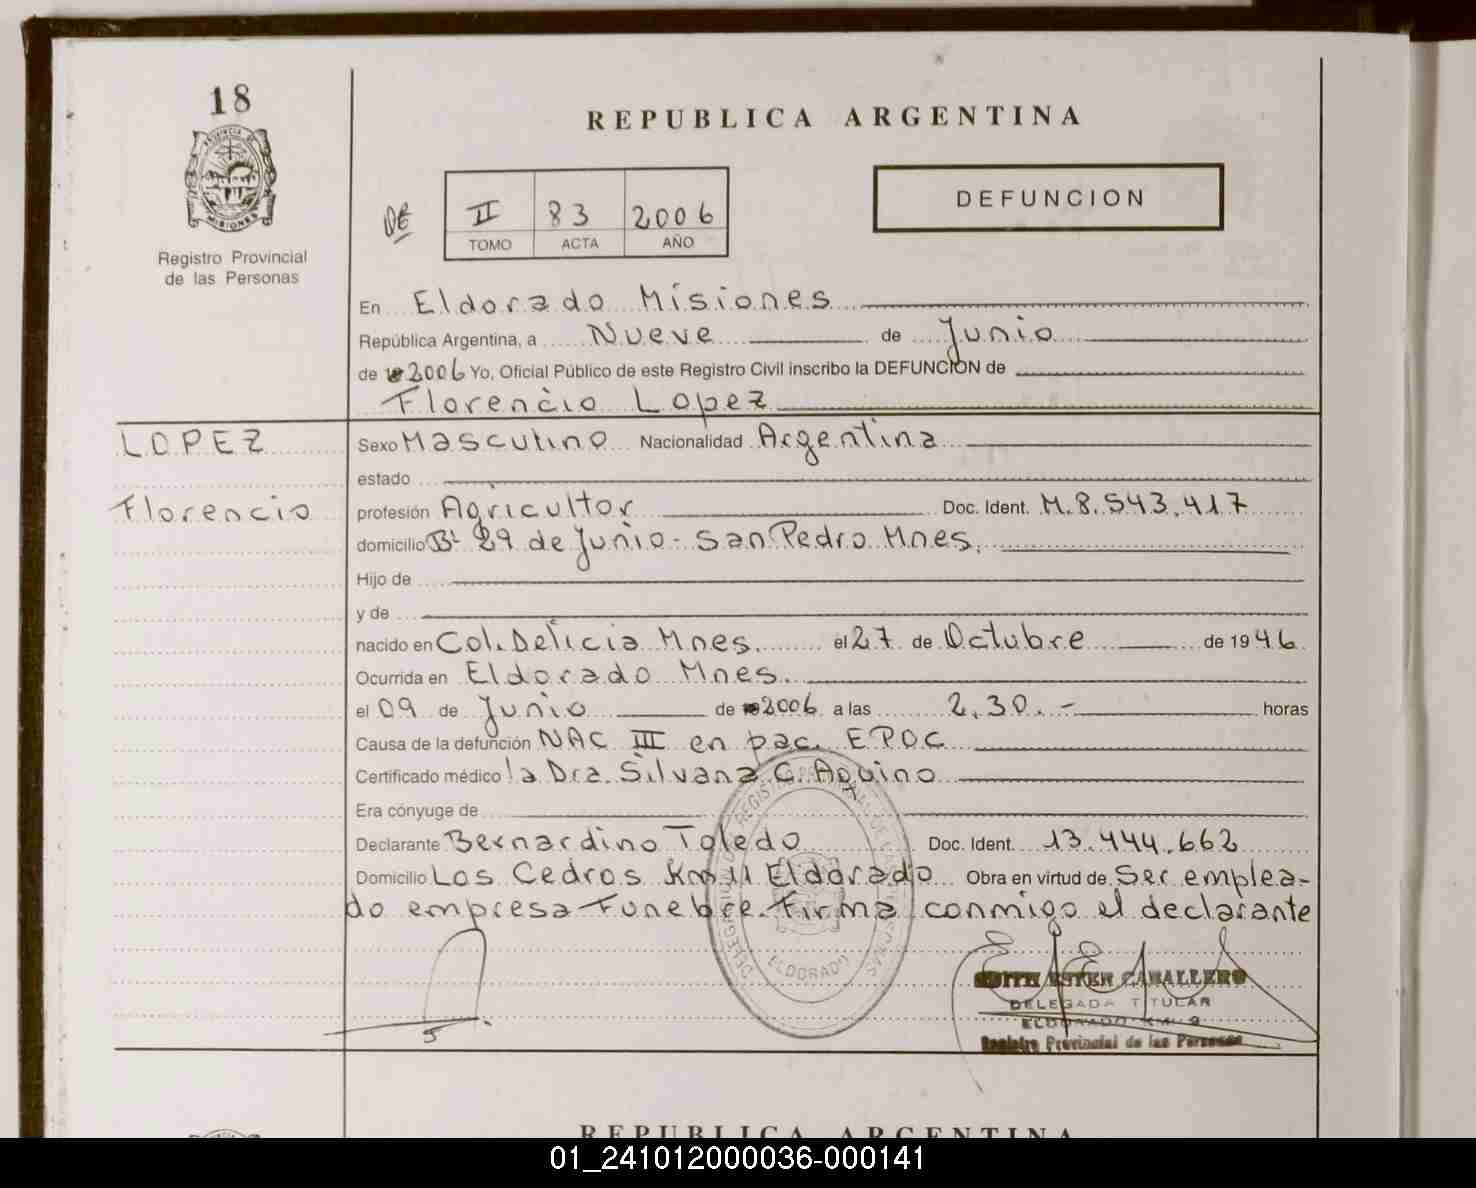 18
PROVINCIA DE
MISIONES
Registro Provincial
de las Personas
REPUBLICA ARGENTINA
DE II 83 2006
TOMO ACTA AÑO
DEFUNCION
En Eldorado Misiones
República Argentina, a Nueve de Junio
de 2006 Yo, Oficial Público de este Registro Civil inscribo la DEFUNCION de
Florencio Lopez
LOPEZ
Florencio
Sexo Masculino Nacionalidad Argentina
estado
profesión Agricultor Doc. Ident. M.8.543.417
domicilio Bº 29 de Junio - San Pedro Mnes.
Hijo de
y de
nacido en Col. Delicia Mnes. el 27 de Octubre de 1946
Ocurrida en Eldorado Mnes.
el 09 de Junio de 2006 a las 2.30.- horas
Causa de la defunción NAC III en pac. EPOC
Certificado médico la Dra. Silvana C. Aquino
Era cónyuge de
Declarante Bernardino Toledo Doc. Ident. 13.444.662
Domicilio Los Cedros Km 11 Eldorado Obra en virtud de Ser emplea-
do empresa Funebre. Firma conmigo el declarante
ELDORADO
EDITH ESTER CABALLERO
DELEGADA TITULAR
ELDORADO KM. 9
Registro Provincial de las Personas
REPUBLICA ARGENTINA
01_241012000036-000141